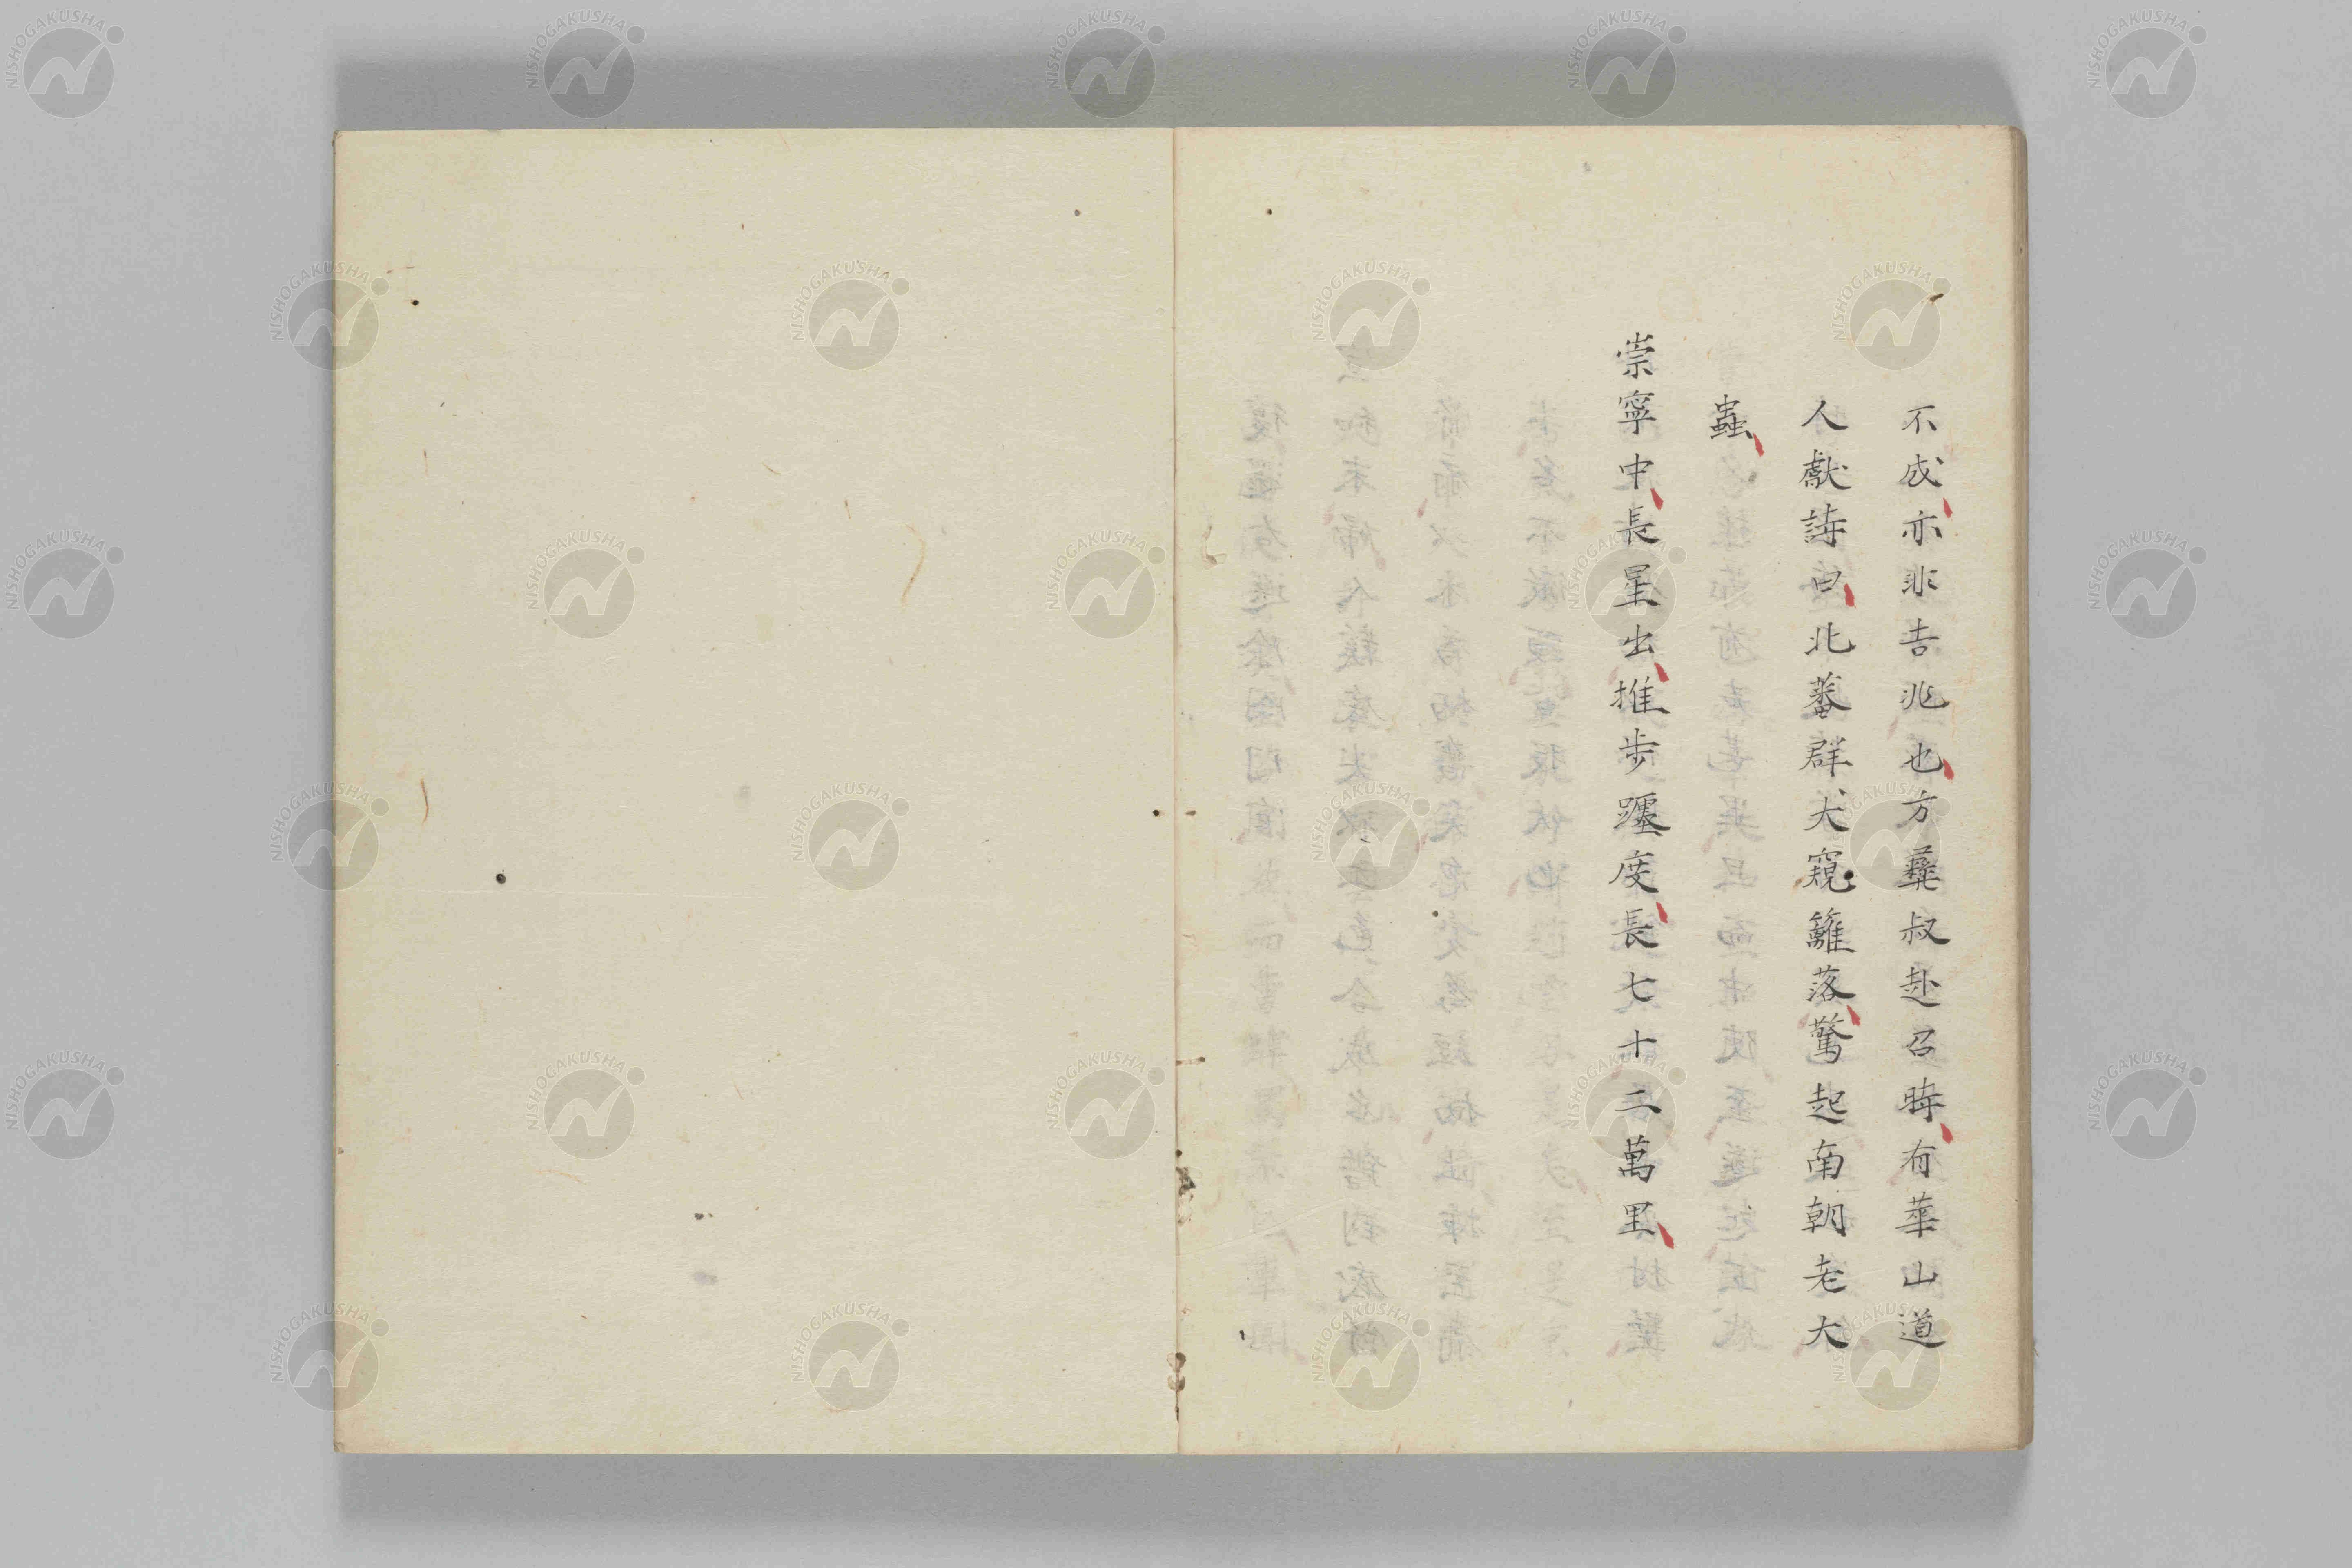 不成亦非吉兆也方彝叔赴召時有華山道
人獻詩曰北蕃群犬窺籬落驚起南朝老大
蟲
崇寧中長星出推步躔度長七十二萬里